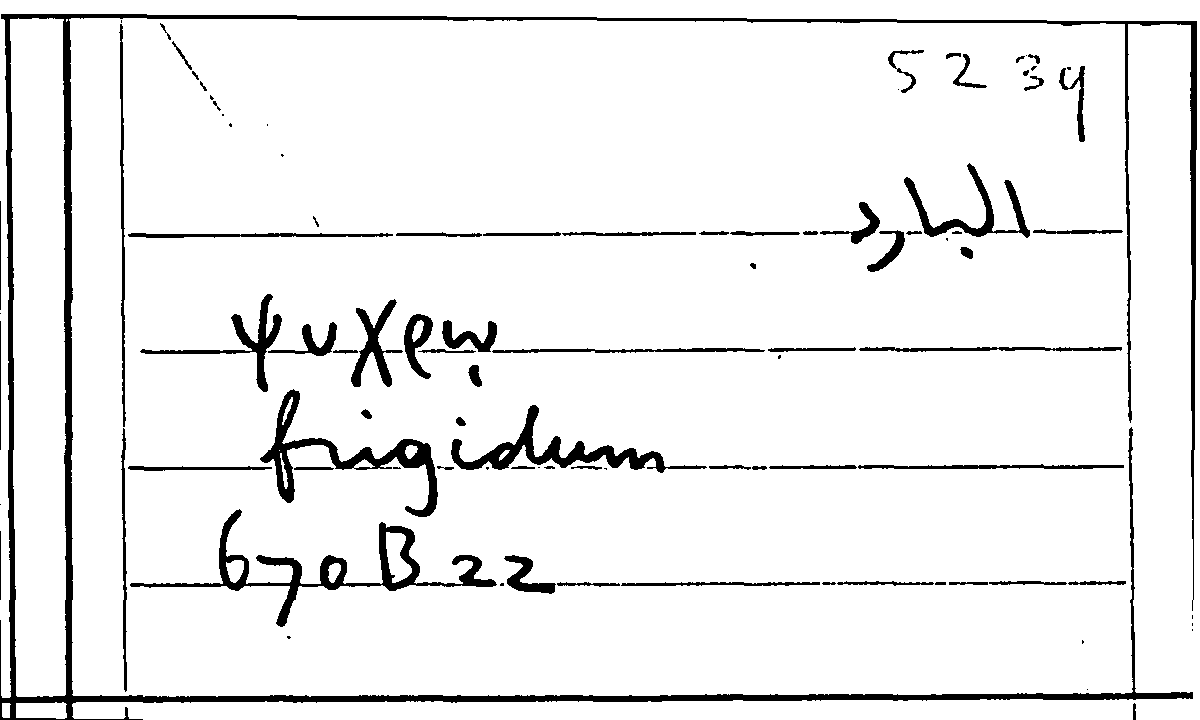 5239
البارد
ψυχρῳ
frigidum
670B22